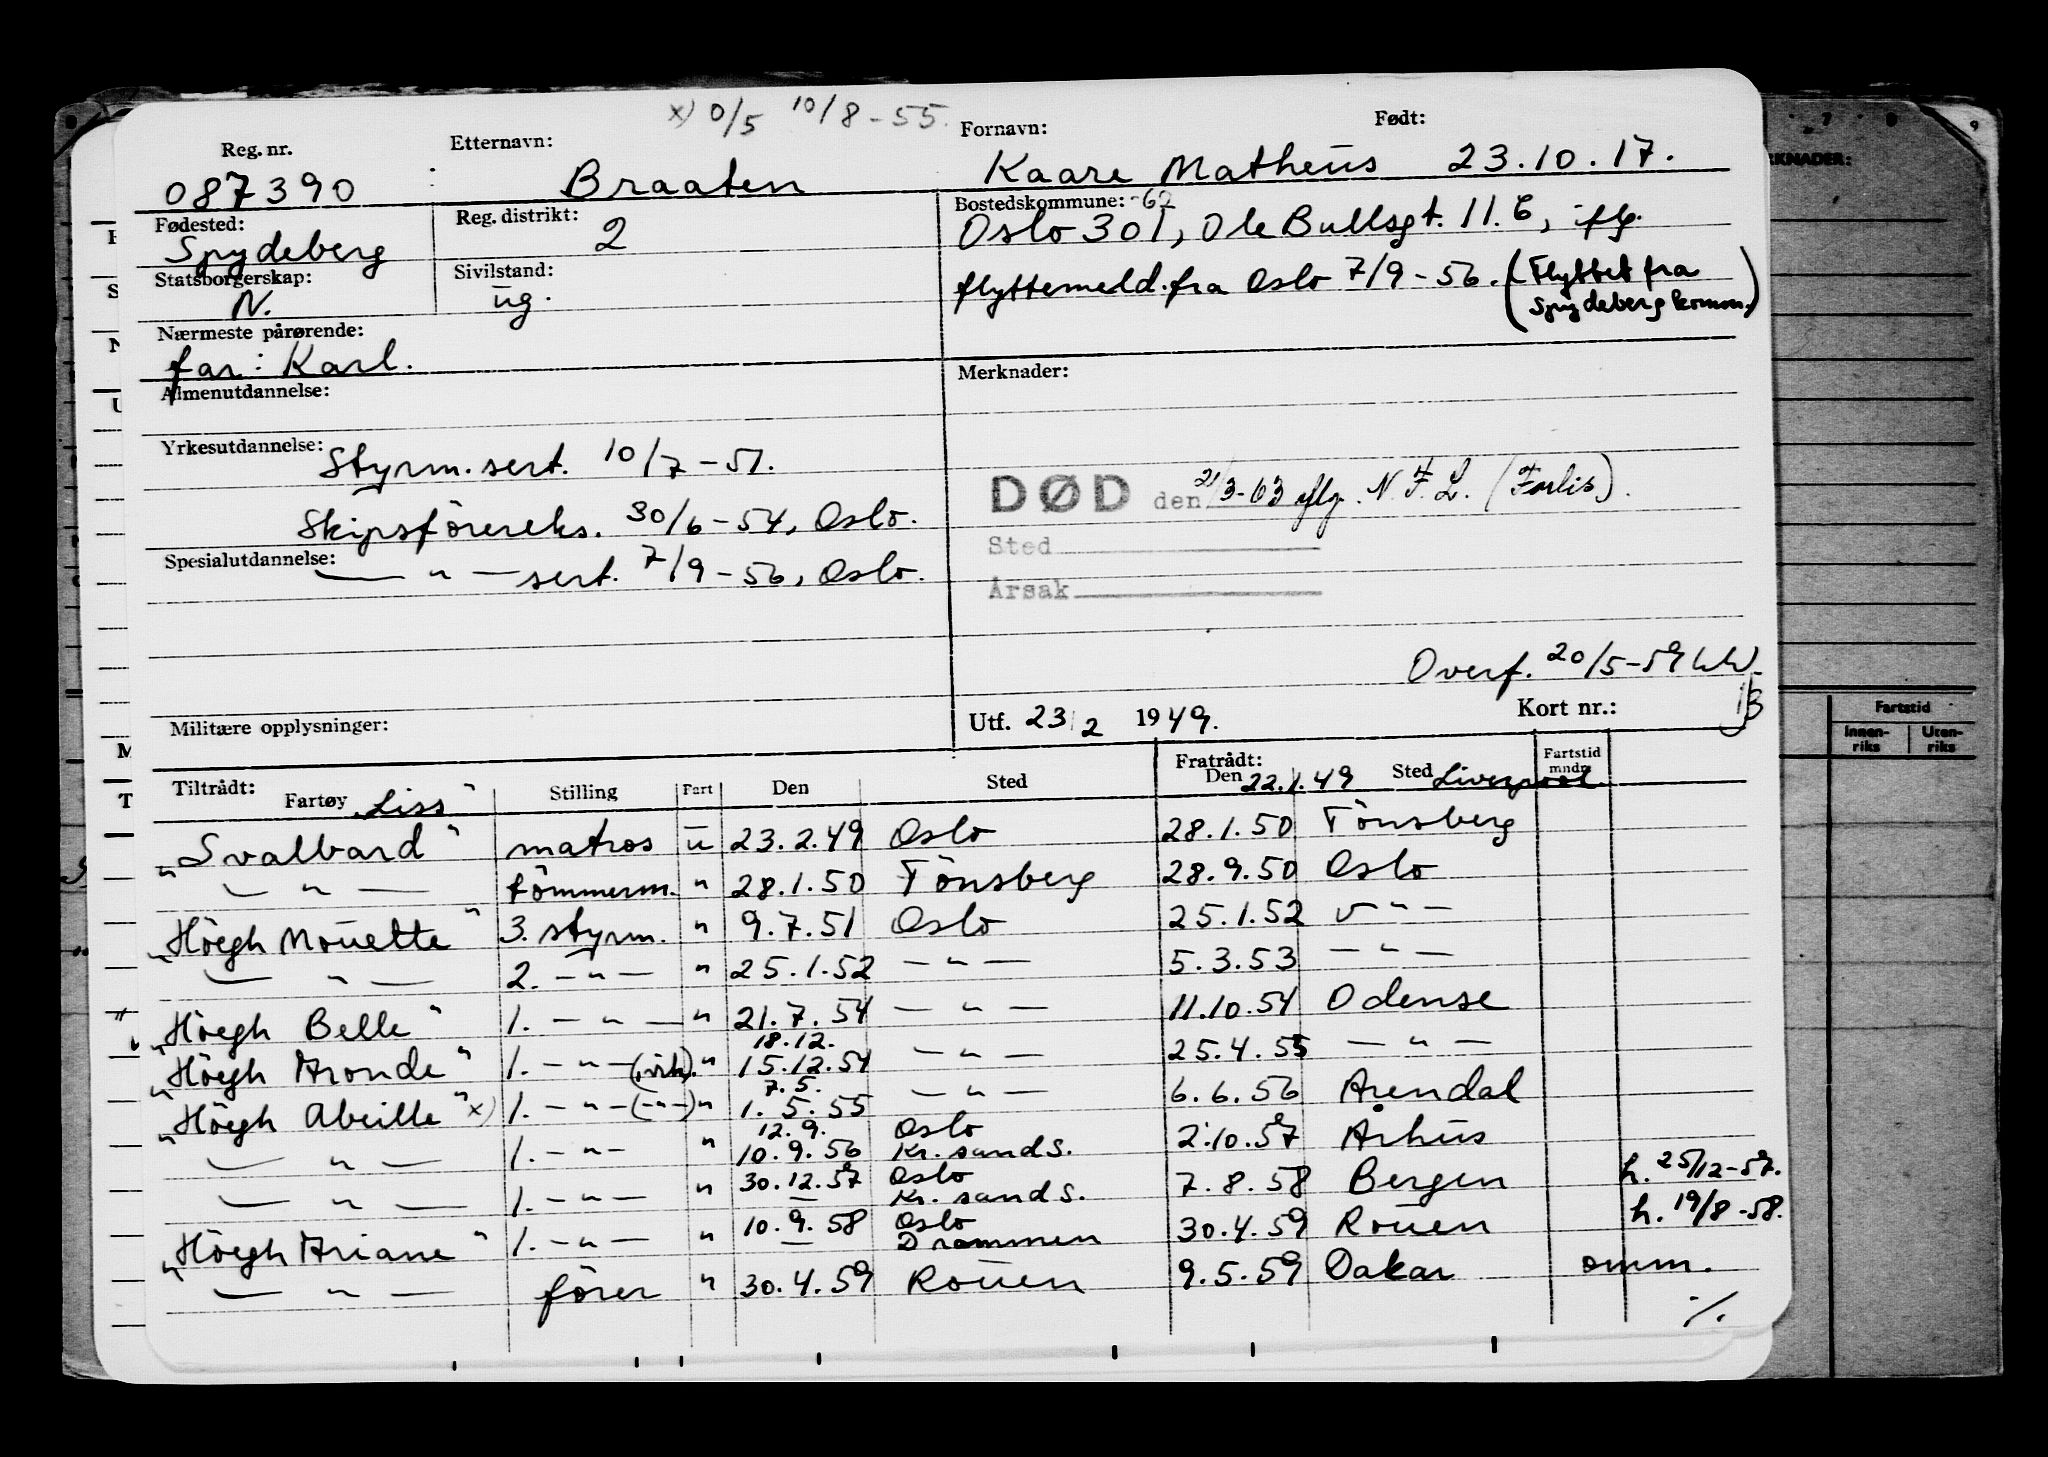 x) 0/5 10/8-55.
Reg. nr. Etternavn: Fornavn: Født:
087390 Braaten Kaare Matheus 23.10.17.
Fødested: Reg. distrikt: Bostedskommune: -62
Spydeberg 2 Oslo 301, Ole Bullsgt. 11.b, iflg.
Statsborgerskap: Sivilstand:
N. ug. flyttemeld. fra Oslo 7/9-56. (Flyttet fra
Spydeberg komm.)
Nærmeste pårørende:
far: Karl.
Almenutdannelse: Merknader:
Yrkesutdannelse: Styrm.sert. 10/7-51.
DØD den 21/3-63 iflg. N.F.L. (Forlis).
Skipsförereks. 30/6-54, Oslo.
Sted
Spesialutdannelse: — " — sert. 7/9-56, Oslo.
Årsak
Overf. 20/5-59
Militære opplysninger: Utf. 23/2 1949. Kort nr.: 1/3
Tiltrådt: Fratrådt: Fartstid
Fartøy Stilling Fart Den Sted Den Sted mndr.
"Liss" 22.1.49 Liverpool
"Svalbard" matros u 23.2.49 Oslo 28.1.50 Tönsberg
— " — tömmerm. " 28.1.50 Tönsberg 28.9.50 Oslo
"Höegh Mouette" 3. styrm. " 9.7.51 Oslo 25.1.52 — " —
— " — 2. — " — " 25.1.52 — " — 5.3.53 — " —
"Höegh Belle" 1. — " — " 21.7.54 — " — 11.10.54 Odense
18.12.
"Höegh Aronde" 1. — " — (virk.) " 15.12.54 — " — 25.4.55 — " —
7.5.
"Höegh Abeille" x) 1. — " — (-"-) " 1.5.55 — " — 6.6.56 Arendal
12.9. Oslo
— " — 1. — " — " 10.9.56 Kr.sand S. 2.10.57 Århus
30.12.57 Oslo
— " — 1. — " — " — Kr. sand S. 7.8.58 Bergen h. 25/12-57.
10.9.58 Oslo
"Höegh Ariane" 1. — " — " — Drammen 30.4.59 Rouen h. 19/8-58.
— " — förer " 30.4.59 Rouen 9.5.59 Dakar omm.
./.
KNADER:
Fartstid
Innen-riks Uten-riks
7 8 9